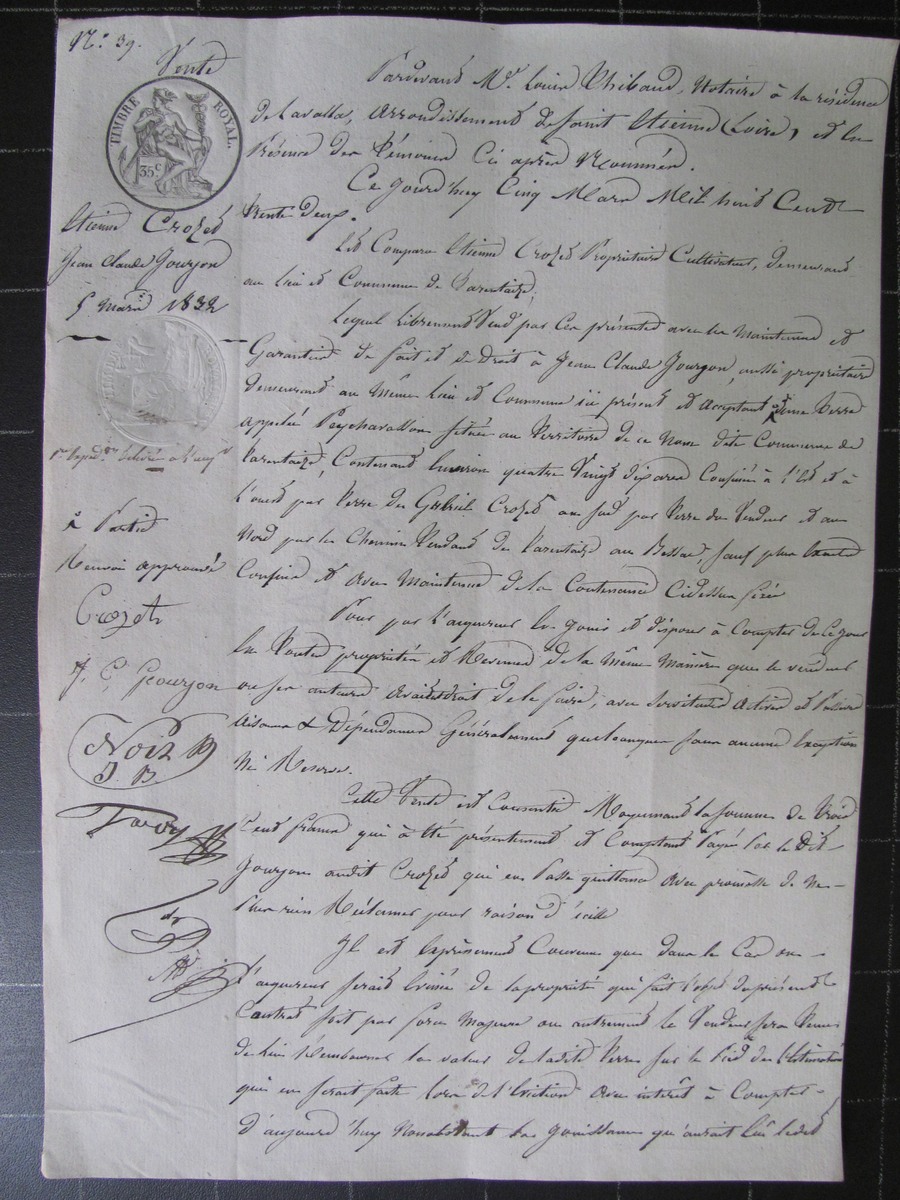 N.° 39.
Vente
TIMBRE ROYAL.
35 c
Etienne Crozet
Jean Claude Jourjon
5 Mars 1832
à Partie
Renvoi approuvé
Crozet
J. C. Jourjon
Noir
J. B.
Tavoy
Pardevant Me. Louis Thibaud, Notaire à la résidence
de Lavalla, arrondissement de Saint Etienne (Loire), et en
Présence des Témoins Ci après Nommés.
Ce jourd'huy Cinq Mars Mil huit Cent
trente deux.
Est Comparu Etienne Crozet Propriétaire Cultivateur, demeurant
au lieu et Commune de Tarentaize,
Lequel librement Vend par Ces présentes avec les Maintenue et
Garantie de fait et de Droit à Jean Claude Jourjon, aussi propriétaire
demeurant au Même lieu et Commune ici présent et acceptant une Terre
appelée Peycharallon située au Territoire de ce Nom dite Commune de
Tarentaize Contenant Environ quatre Vingt dix ares Confinée à l'Est et à
l'ouest par Terre de Gabriel Crozet au sud par Terre du Vendeur et au
Nord par le Chemin Tendant de Tarentaize au Bessat, sauf plus Exacte
Confins et avec Maintenue de la Contenance Cidessus fixée
Pour par l'aquereur En jouir et disposer à Compter de Ce jour
En Toute propriété et Revenus de la Même Manière que le vendeur
ou ses auteurs avaient droit de le faire, avec Servitudes Actives et Passives
Aisances & Dépendances Généralement quelconques sans aucune Exception
Ni Reserve.
Cette Vente est Consentie Moyennant la somme de Trois
Cent francs qui a été présentement et Comptant Payée Par le Dit
Jourjon audit Crozet qui en Passe quittance avec promesse de Ne
Plus rien Réclamer pour raison d'icelle
Il est Expressément Convenu que dans le Cas ou
l'aquereur serait Evincé de la propriété qui fait l'objet du présent
Contrat soit par force Majeure ou autrement le Vendeur sera Tenu
de lui Rembourser la valeur de ladite Terre sur le Pied de l'Estimation
qui en serait faite lors de l'Eviction avec intérêt à Compter
d'aujourd'huy Nonobstant les jouissances qu'aurait Eue ledit